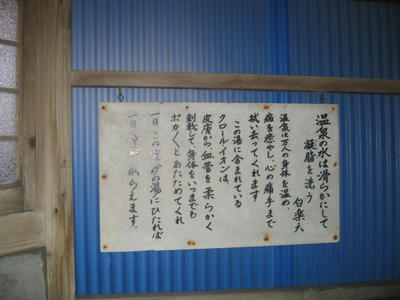 温泉の水は滑らかにして
凝脂を洗う
白楽天
温泉は万人の身体を温め、
病を癒やし、心の痛手まで
拭い去ってくれます
この湯に含まれている
クロールイオンは、
皮膚から血管を柔らかく
刺戟して、身体をいつまでも
ポカ〱とあたためてくれ
一日この の湯にひたれば
一日 らえます。